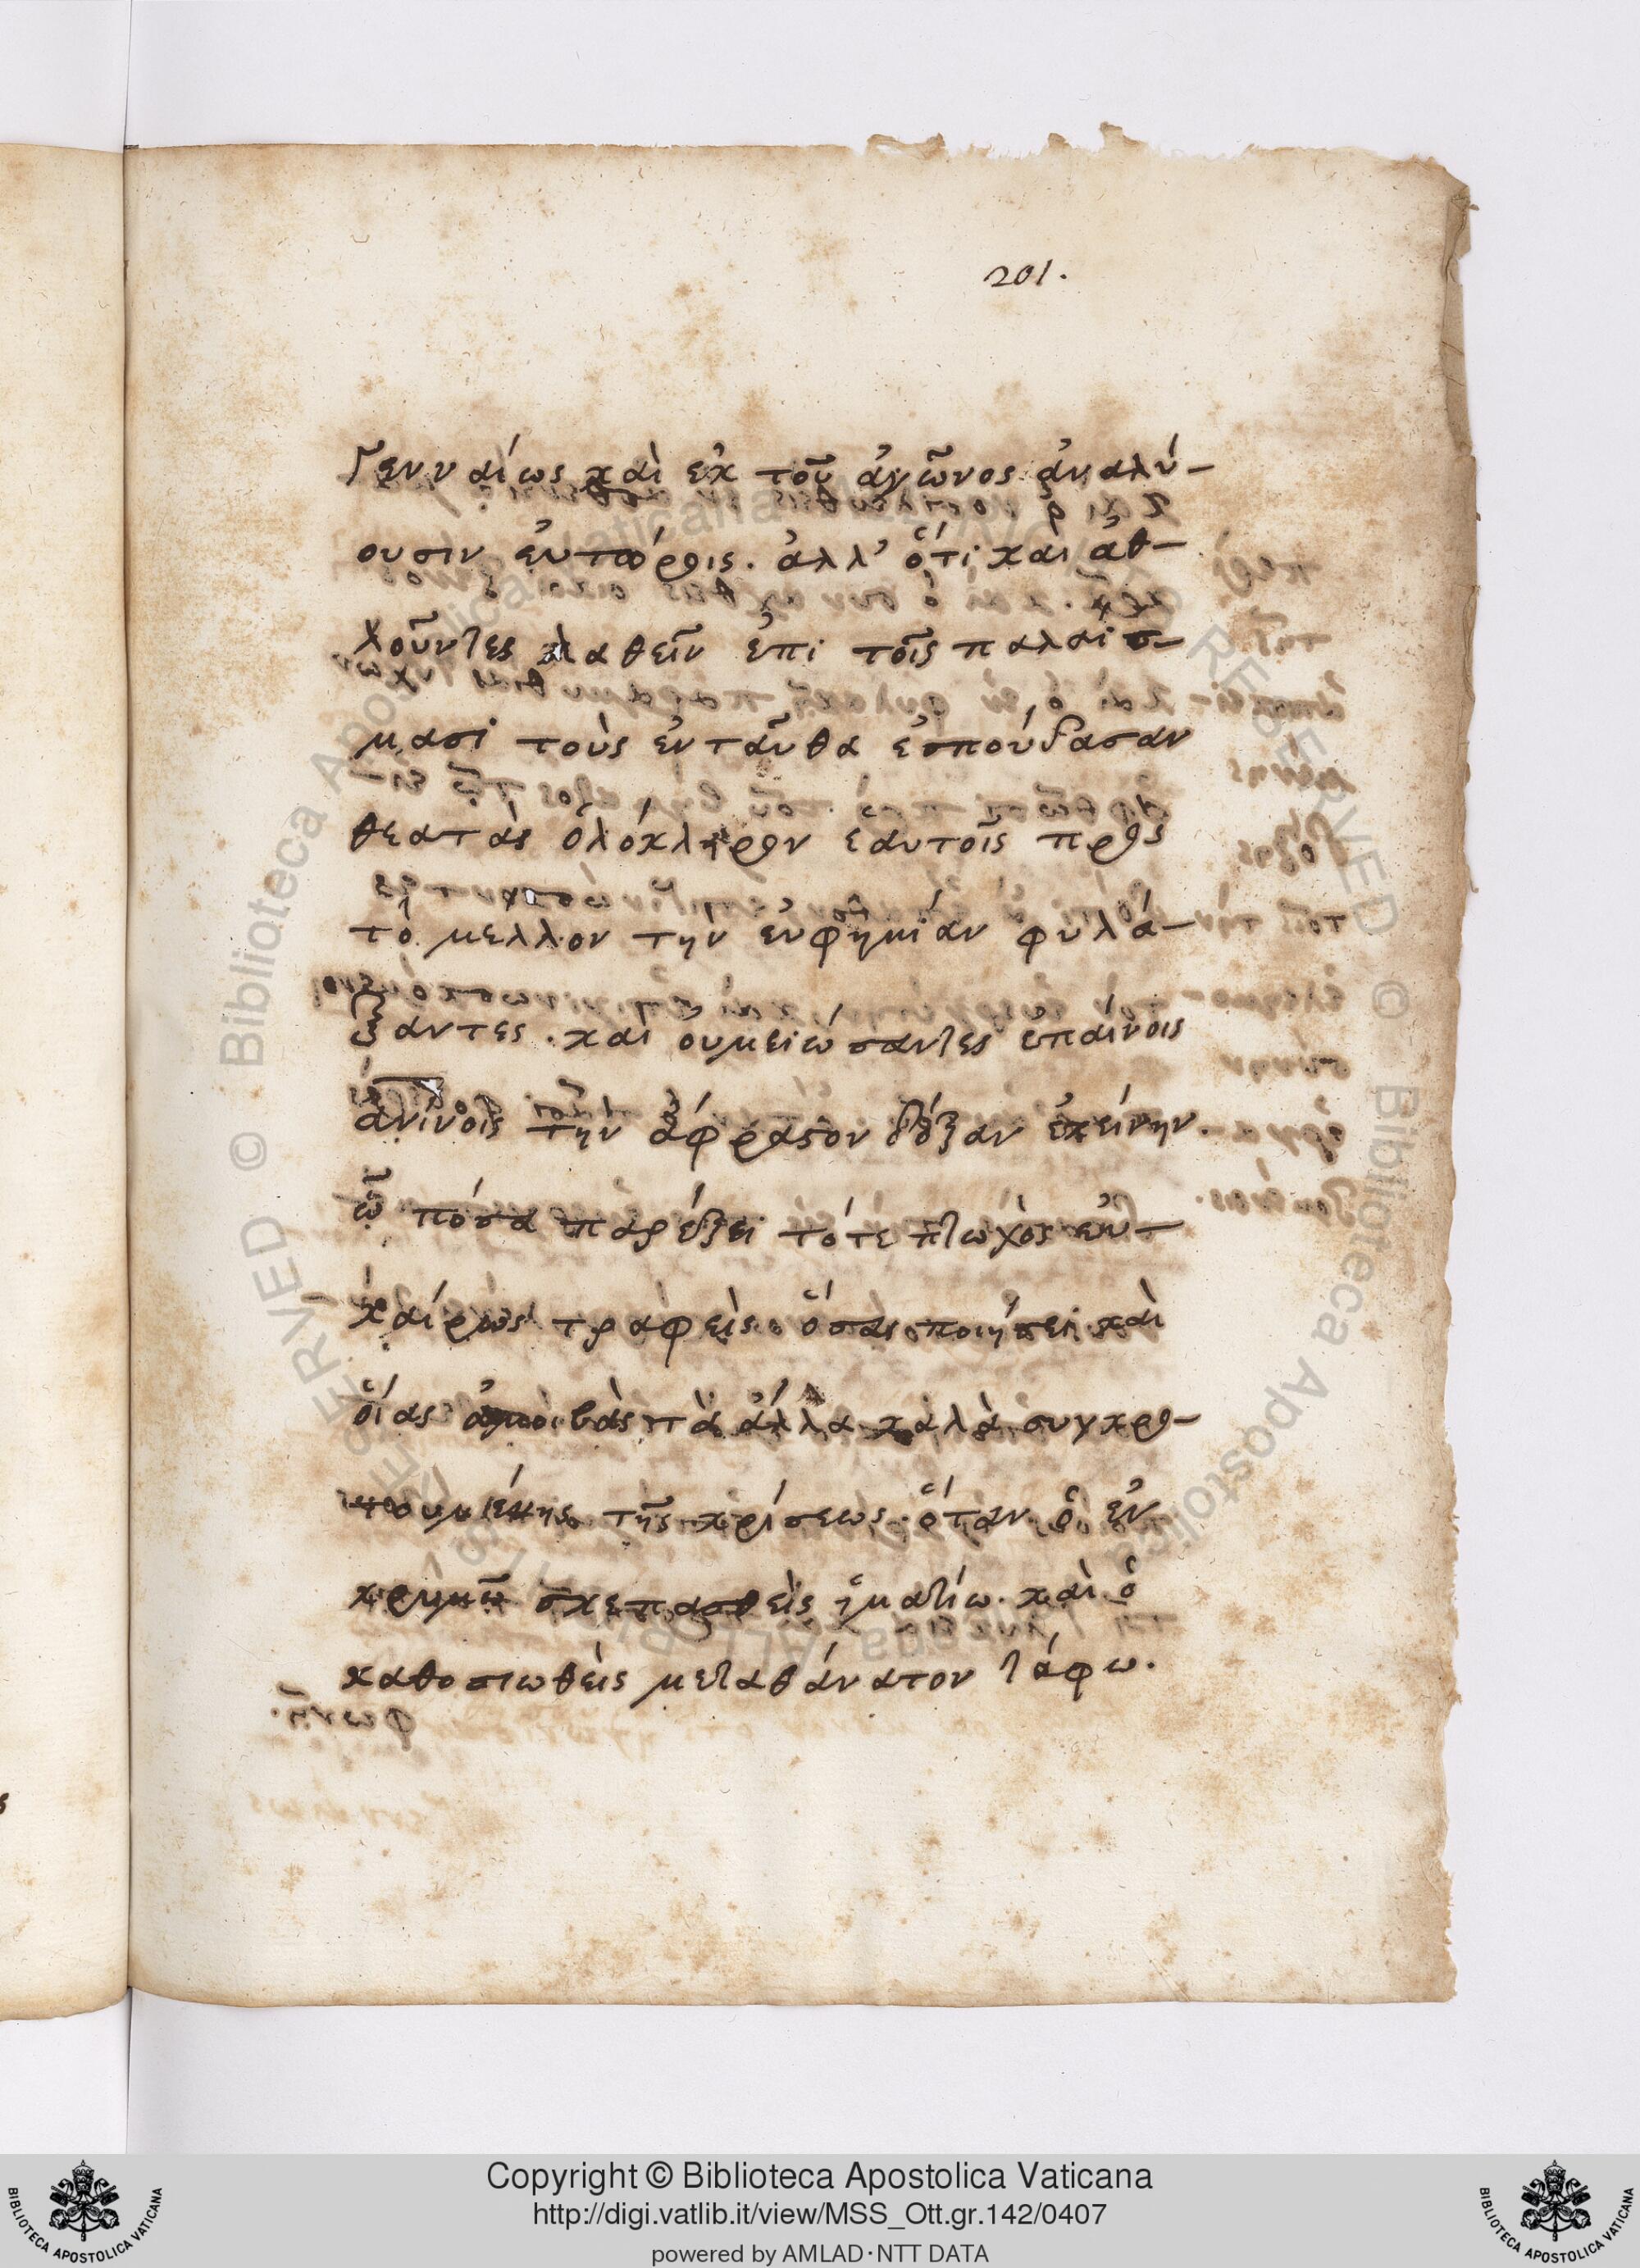 201.
Γενναίως καὶ ἐκ τοῦ ἀγῶνος ἀναλύ-
ουσιν εὐπόροις. ἀλλ' ὅτι καὶ ἀθ-
λοῦντες λαθεῖν ἐπὶ τοῖς παλαίσ-
μασι τοὺς ἐνταῦθα ἐσπούδασαν
θεατὰς ὁλόκληρον ἑαυτοῖς πρὸς
τὸ μέλλον τὴν εὐφημίαν φυλά-
ξαντες. καὶ
τὴν ἄφραστον δόξαν ἐκείνην.
ὢ πόσα παρέξει τότε πτωχὸς εὐ-
καίρως τραφείς. ὅσας ποιήσει καὶ
οἵας ἀμοιβὰς τὰ ἄλλα καλὰ συγκρο-
τουμένης τῆς κρίσεως. ὅταν ὁ ἐν
κρυμῶ σκεπασθεὶς ἱματίω. καὶ ὁ
καθοσιωθεὶς μετὰ θάνατον τάφω.
Copyright © Biblioteca Apostolica Vaticana
http://digi.vatlib.it/view/MSS_Ott.gr.142/0407
powered by AMLAD·NTT DATA
BIBLIOTECA APOSTOLICA VATICANA
BIBLIOTECA APOSTOLICA VATICANA